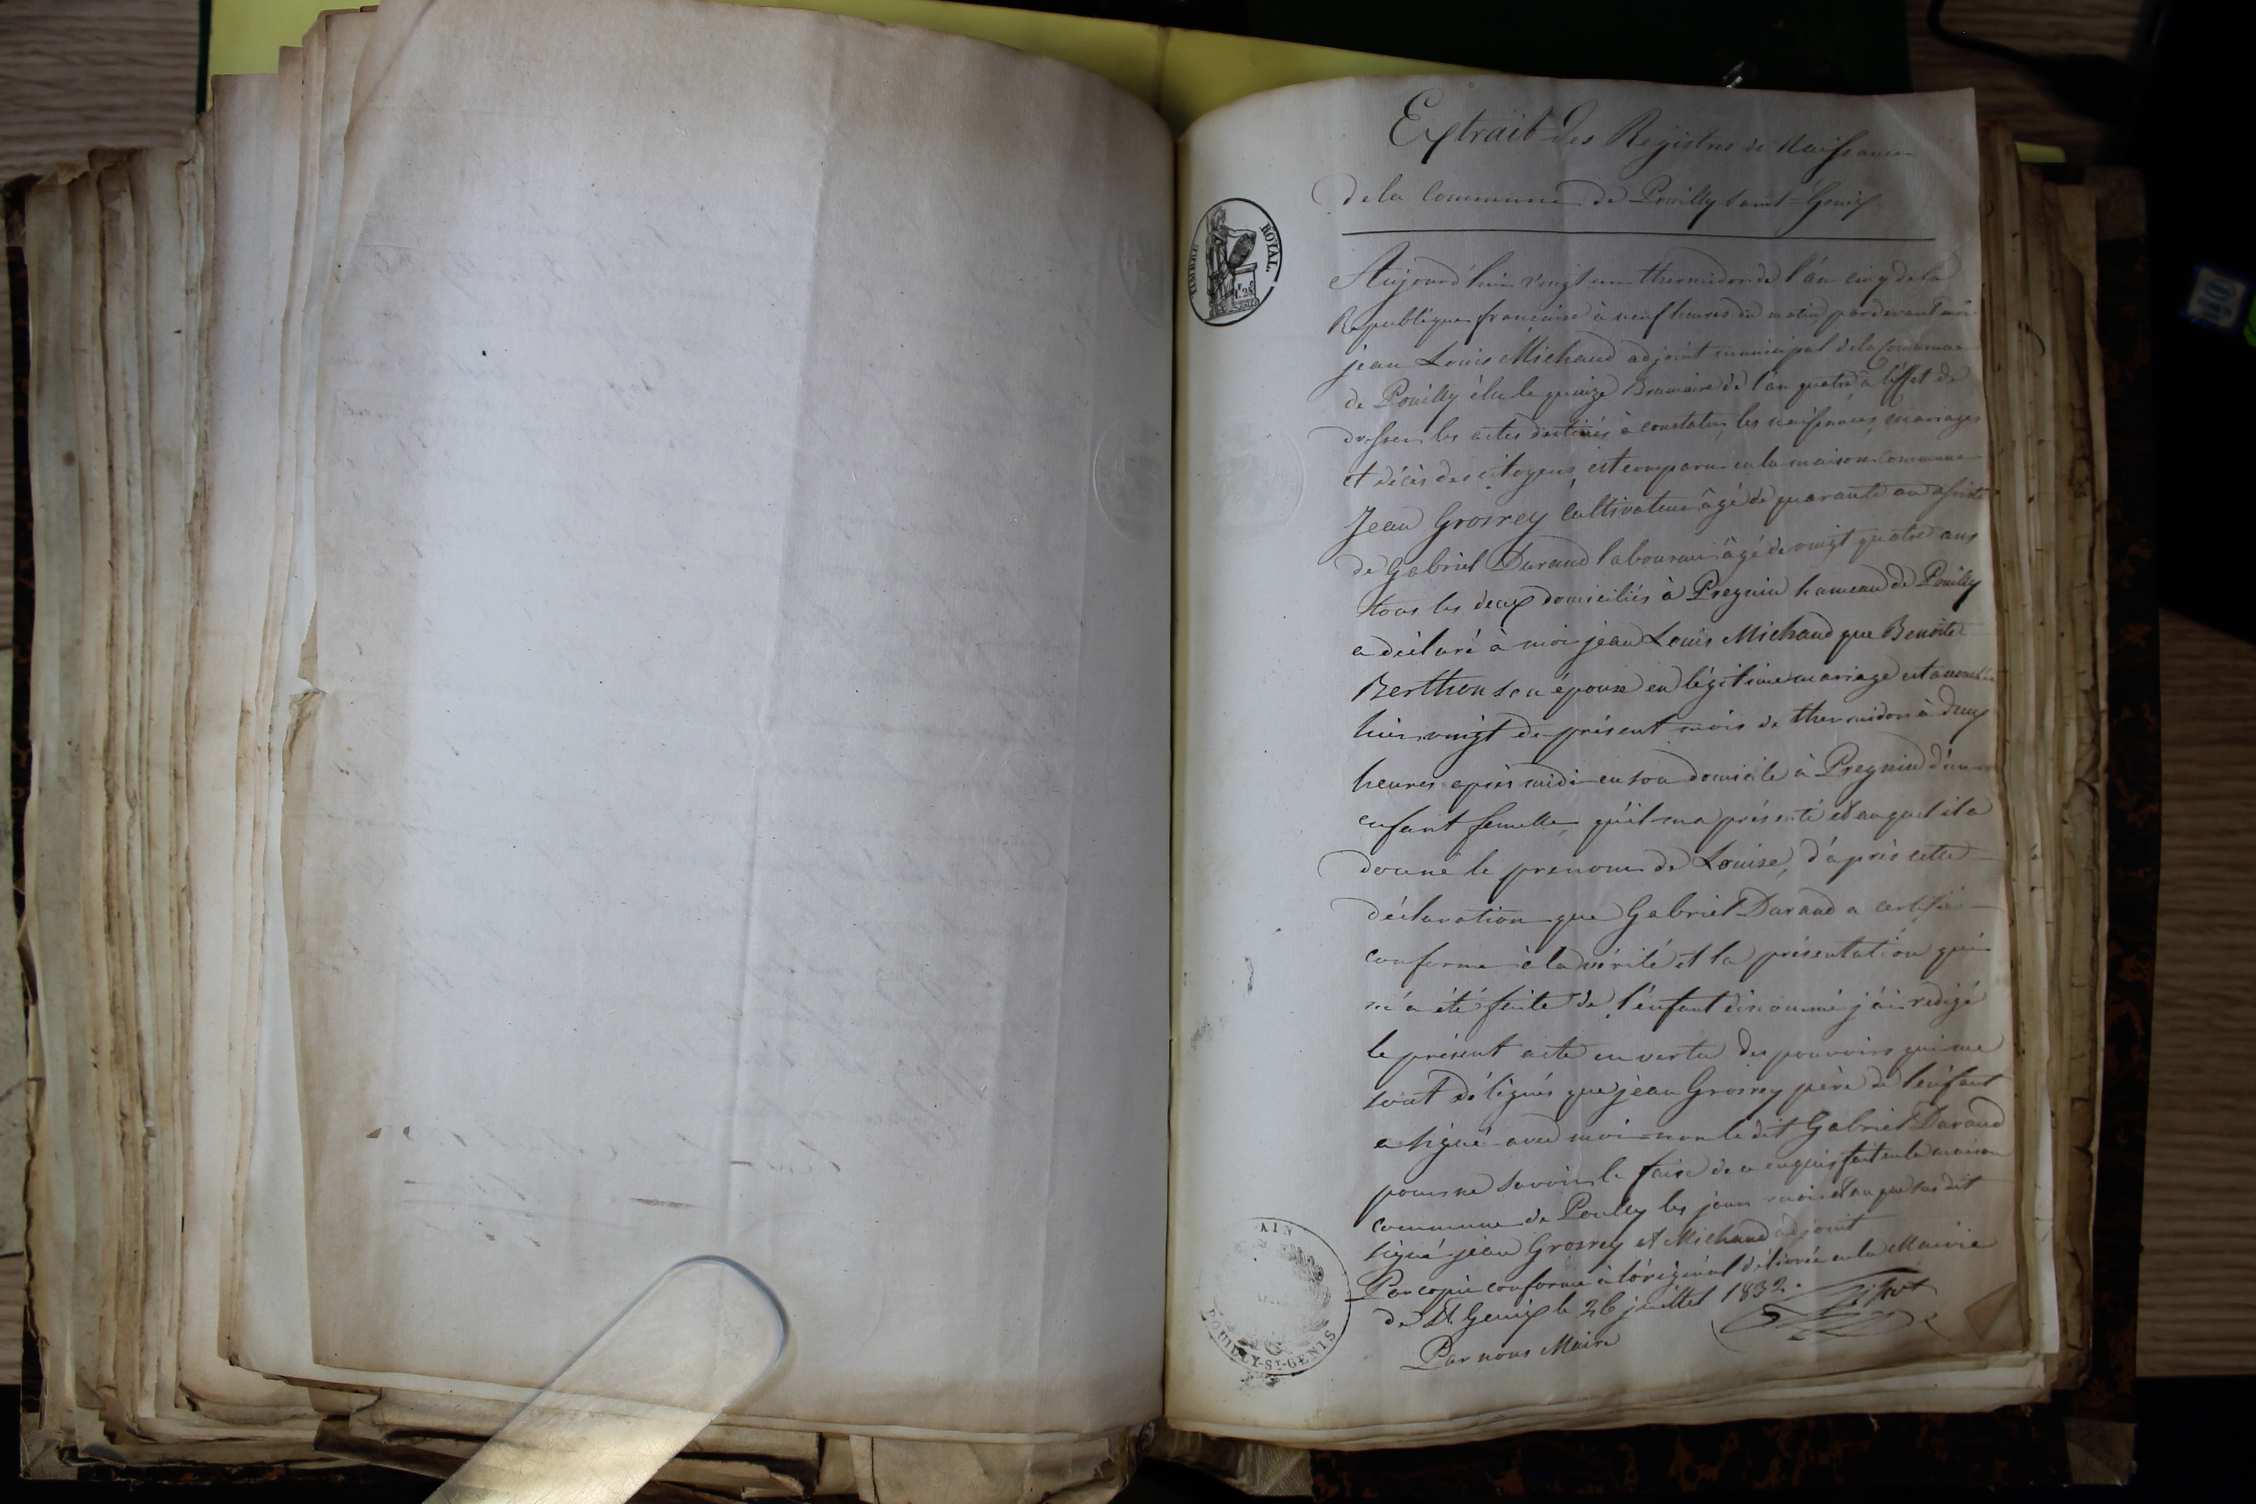 Extrait des Registres de Naissances
de la Commune de Pouilly Saint-Genix
TIMBRE ROYAL.
Aujourd'hui vingt un thermidor de l'an cinq de la
Republique francaise à neuf heures du matin pardevant moi
jean Louis Michaud adjoint municipal de la Commune
de Pouilly élu le quinze Brumaire de l'an quatre à l'effet de
dresser les actes destinés à constater les naissances, mariages
et décès des citoyens, est comparu en la maison commune
Jean Grosrey Cultivateur âgé de quarante an assisté
de Gabriel Durand laboureur âgé de vingt quatre ans
tous les deux domiciliés à Pregnin hameau de Pouilly
a déclaré à moi jean Louis Michaud que Benoite
Berthon son épouse en légitime mariage est accouchée
hier vingt du présent mois de thermidor à deux
heures après midi en son domicile à Pregnin d'un
enfant femelle, qu'il m'a présenté et auquel il a
donné le prenom de Louise, d'après cette
déclaration que Gabriel Durand a certifié
conforme à la vérité et la présentation qui
m'a été faite de l'enfant dénommé j'ai redigé
le présent acte en vertu des pouvoirs qui me
sont délégués que jean Grosrey père de l'enfant
a signé avec moi non le dit Gabriel Durand
pour ne savoir le faire de ce enquis fait en la maison
commune de Pouilly les jour mois et an que sus dit
signé jean Grosrey et Michaud adjoint
Par copie conforme à l'original délivrée en la Mairie
de St Genix le 26 juillet 1832.
Par nous Maire
AIN
POUILLY-ST-GENIS